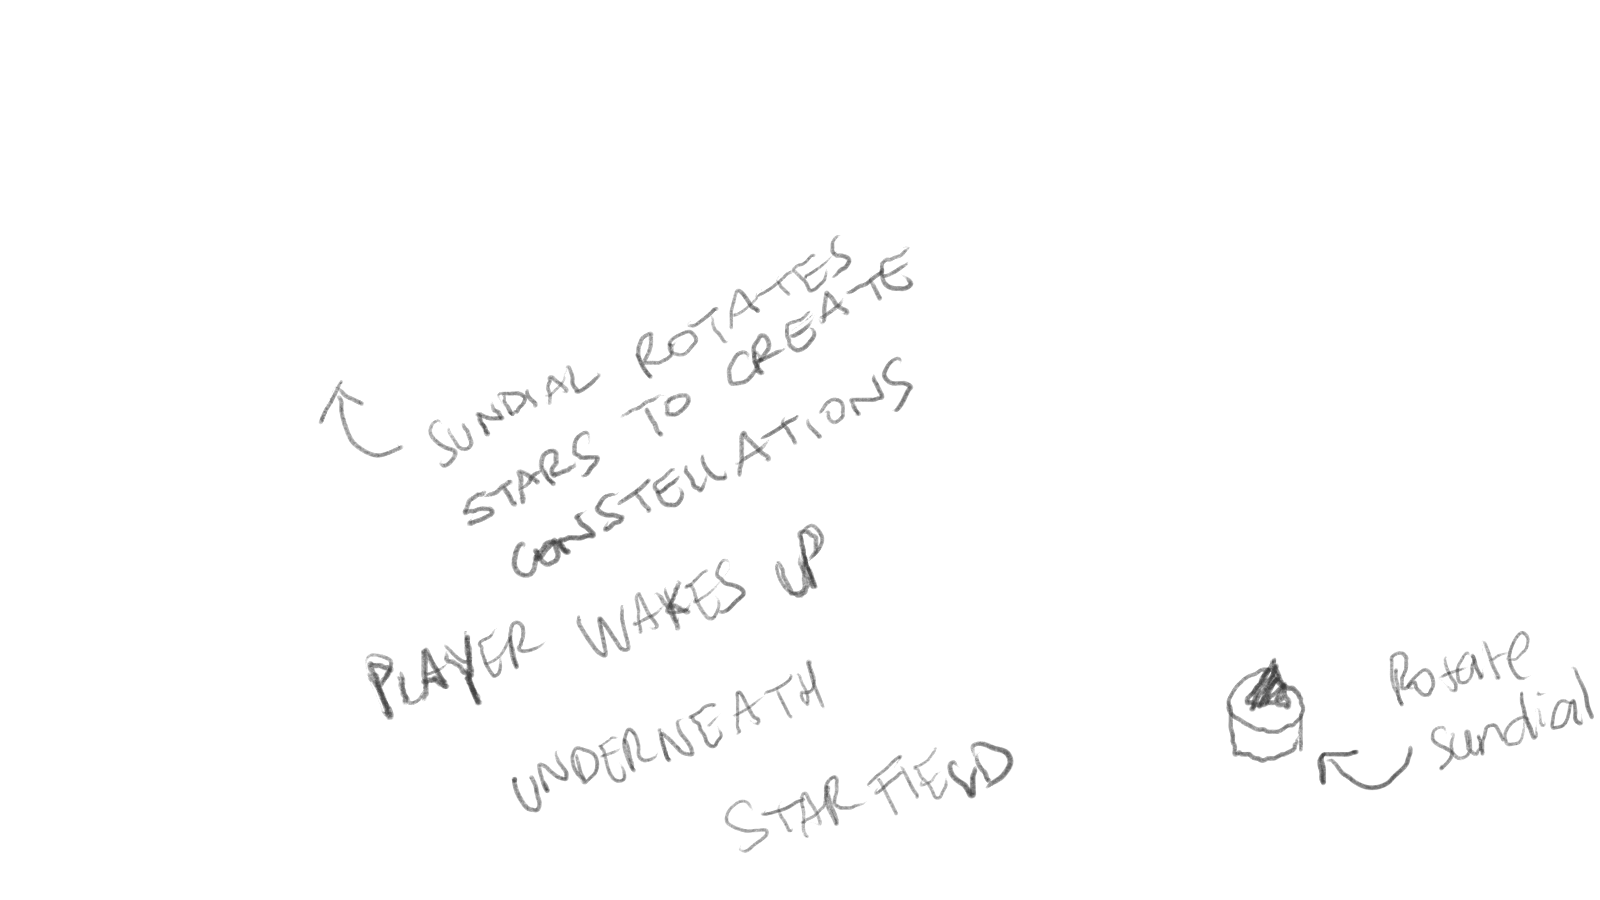 SUNDIAL ROTATES
STARS TO CREATE
CONSTELLATIONS
PLAYER WAKES UP
UNDERNEATH
STAR FIELD
Rotate
sundial